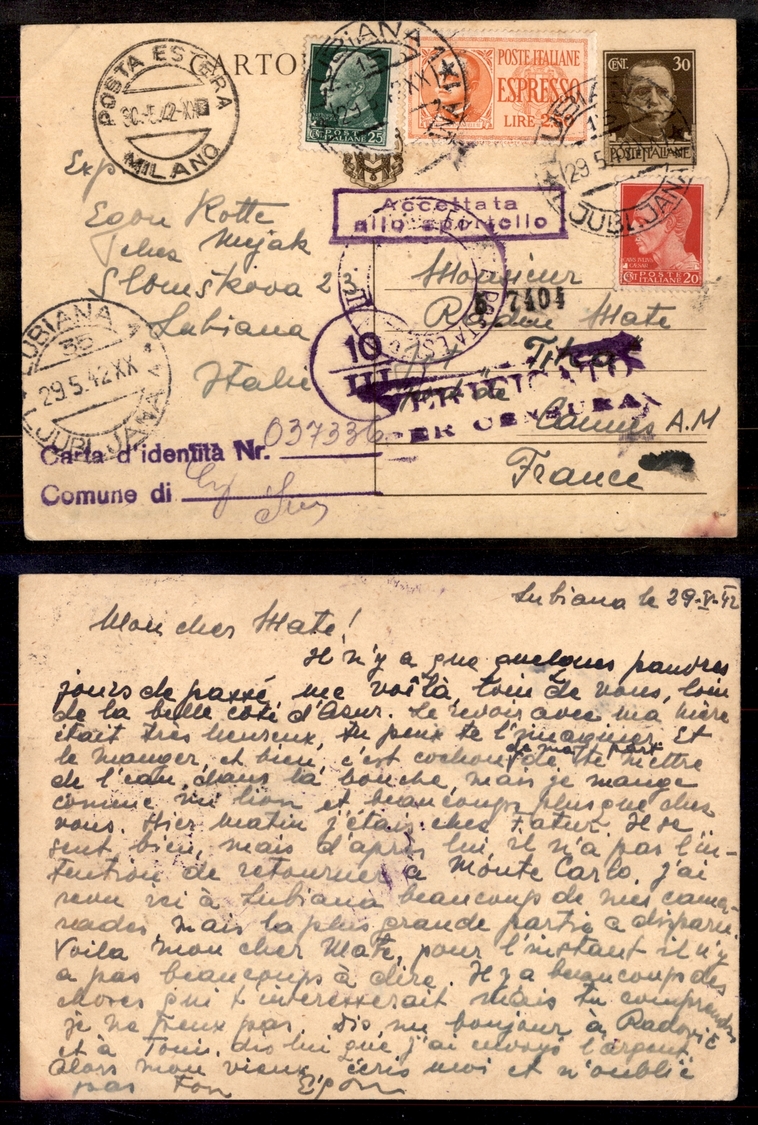 POSTA ESTERA
30-5.42-XX
MILANO
CARTO
LUBIANA 1
29.5.42 XX
LJUBLJANA
CENT. 25
POSTE ITALIANE
POSTE ITALIANE
ESPRESSO
LIRE 2,50
CENT. 30
POSTE ITALIANE
LUBIANA
29.5.42
LJUBLJANA
CENT 20
POSTE ITALIANE
Accettata
allo sportello
Exp
Egon Kotte
Slomškova 2
Lubiana
Italie
Monsieur
7404
Mate
Cannes A.M
France
10
III
VERIFICATO
PER CENSURA
LUBIANA 1
3b
29.5.42 XX
LJUBLJANA 1
Carta d'identità Nr. 037336
Comune di
Lubiana le 29-V-42
Mon cher Mate!
Il n'y a que quelques pauvres
jours de passé, me voilà, loin de vous, loin
de la belle coté d'Asur. Le revoir avec ma mère
était très heureux, tu peux te l'imaginer. Et
le manger, et bien, c'est cochon de ma part de te mettre
de l'eau dans la bouche, mais je mange
comme un lion et beaucoups plus que chez
vous. Hier matin j'étais chez Fatur. Il se
sent bien, mais d'après lui il n'a pas l'in-
tention de retourner à Monte Carlo. J'ai
revu ici à Lubiana beaucoup de mes cama-
rades, mais la plus grande partie a disparu.
Voila mon cher Mate, pour l'instant il n'y
a pas beaucoups à dire. Il y a beaucoup des
choses qui t'interesserait mais tu comprendras
je ne peux pas. Dis, un bonjour à Radović
et à Toni, dis lui que j'ai envoyé l'argent.
Alors mon vieux, écris moi et n'oublie
pas ton Egon